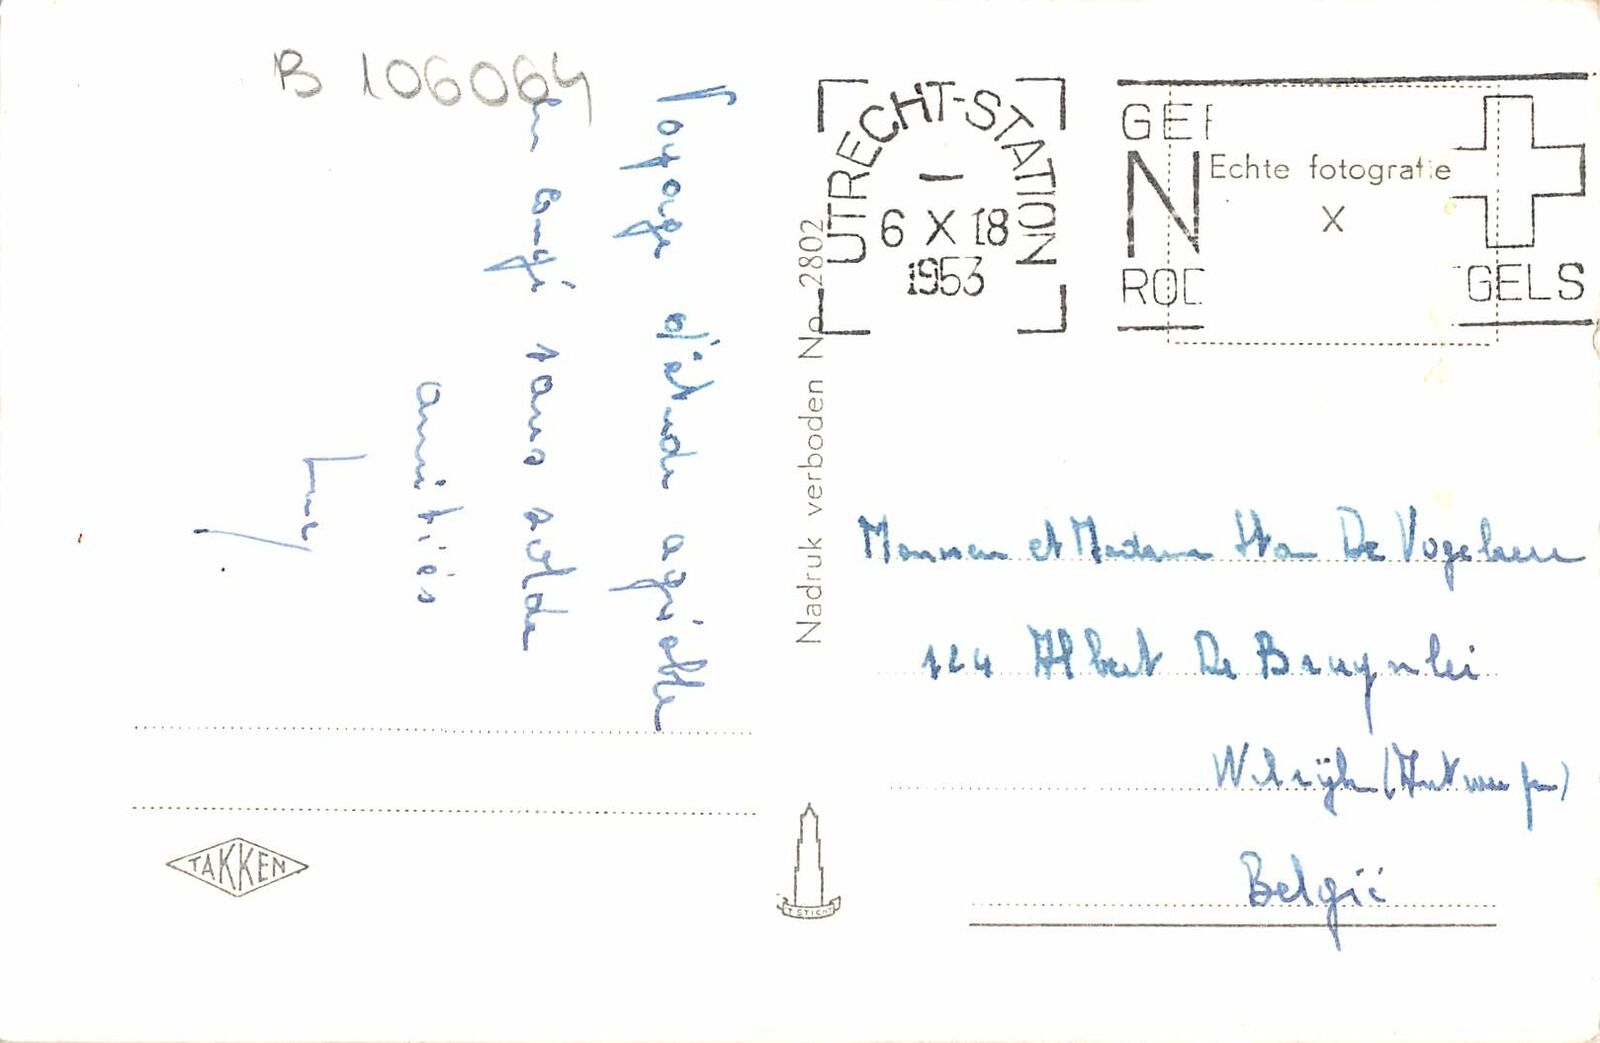 B 106064
Voyage d'étude agréable
en congé sans solde
amitiés
UTRECHT-STATION
6 X 18
1953
GE
N
RO
GELS
Echte fotografie
X
Nadruk verboden No 2802
et Madame De Vogelaere
124 Albert De Bruynlei
Wilrijk (Antwerpen)
België
TAKKEN
T STICHT